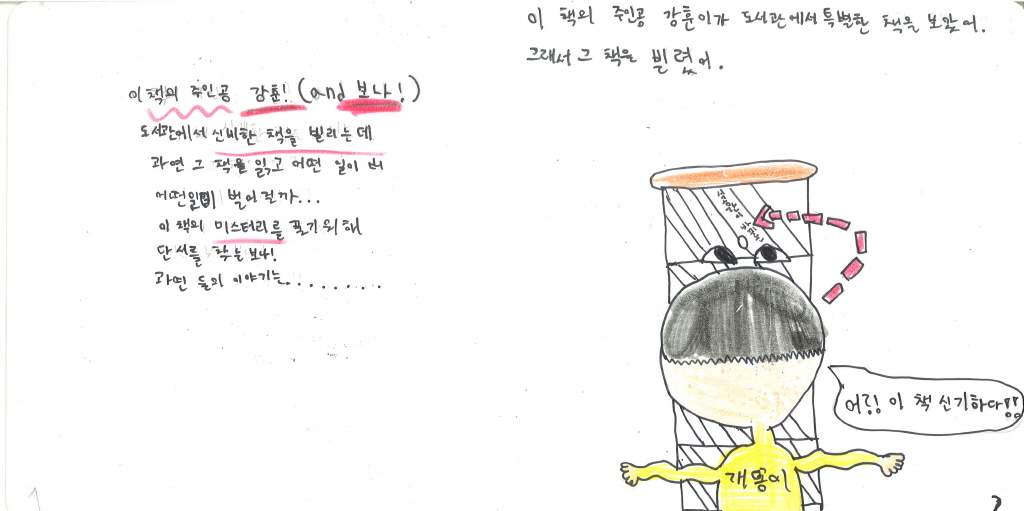 이 책의 주인공 강훈! (and 보나!)
도서관에서 신비한 책을 빌리는데
과연 그 책을 읽고 어떤 일이
어떤일이 벌어질까...
이 책의 미스터리를 풀기위해
단서를 찾는 보나!
과연 둘의 이야기는........
1
이 책의 주인공 강훈이가 도서관에서 특별한 책을 보았어.
그래서 그 책을 빌렸어.
어?! 이 책 신기하다!!
개똥이
2